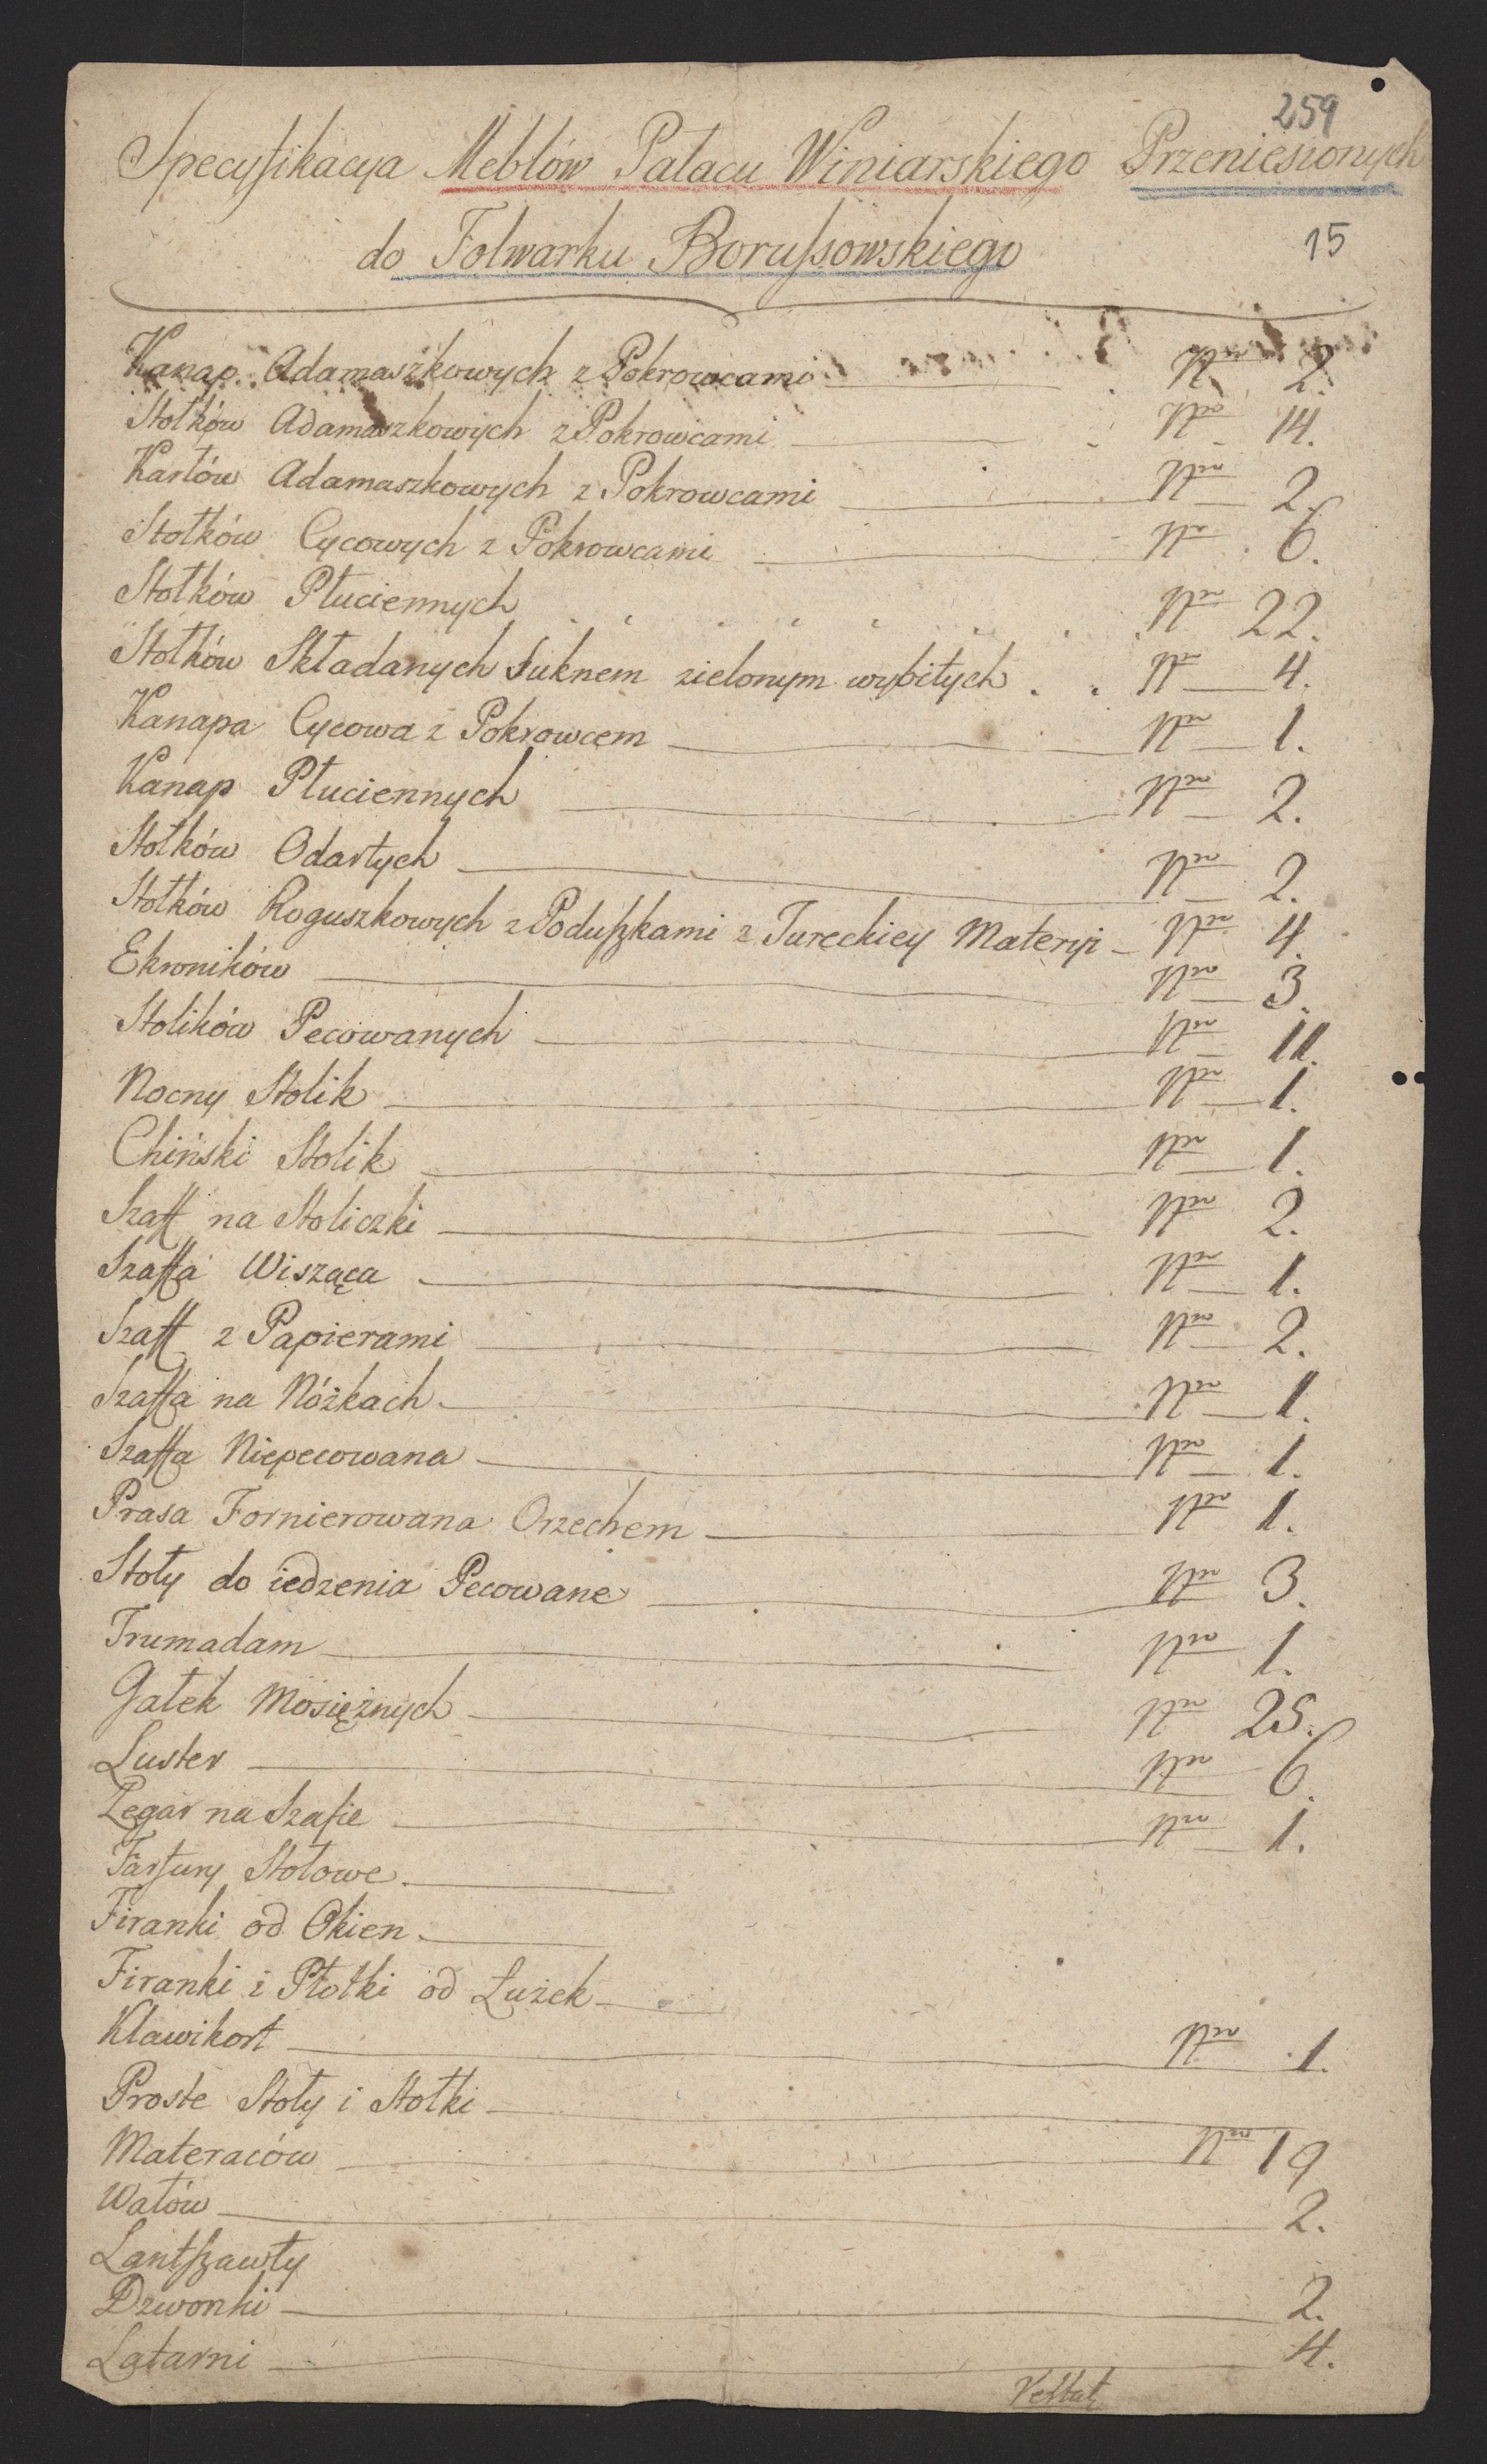 259
Specyfikacya Meblów Pałacu Winiarskiego Przeniesionych
do Folwarku Borussowskiego
15
Kanap Adamaszkowych z Pokrowcami Nro 2.
Stołków Adamaszkowych z Pokrowcami Nro 14.
Karłów Adamaszkowych z Pokrowcami Nro 2.
Stołków Cycowych z Pokrowcami Nro 6.
Stołków Płuciennych Nro 22.
Stołków Składanych Suknem zielonym wybitych Nro 4.
Kanapa Cycowa z Pokrowcem Nro 1.
Kanap Płuciennych Nro 2.
Stołków Odartych Nro 2.
Stołków Roguszkowych z Poduszkami z Tureckiey Materyi Nro 4.
Ekroników Nro 3.
Stolików Pecowanych Nro 11.
Nocny Stolik Nro 1.
Chiński Stolik Nro 1.
Szaff na Stoliczki Nro 2.
Szaffa Wisząca Nro 1.
Szaff z Papierami Nro 2.
Szaffa na Nóżkach Nro 1.
Szaffa Niepecowana Nro 1.
Prasa Fornierowana Orzechem Nro 1.
Stoły do iedzenia Pecowane Nro 3.
Trumadam Nro 1.
Gałek Mosiężnych Nro 25.
Luster Nro 6.
Zegar na Szafie Nro 1.
Farfury Stołowe
Firanki od Okien
Firanki i Płotki od Łużek
Klawikort Nro 1.
Proste Stoły i Stołki
Materaców Nro 19
Wałów 2.
Lantszawty
Dzwonki 2.
Latarni 4.